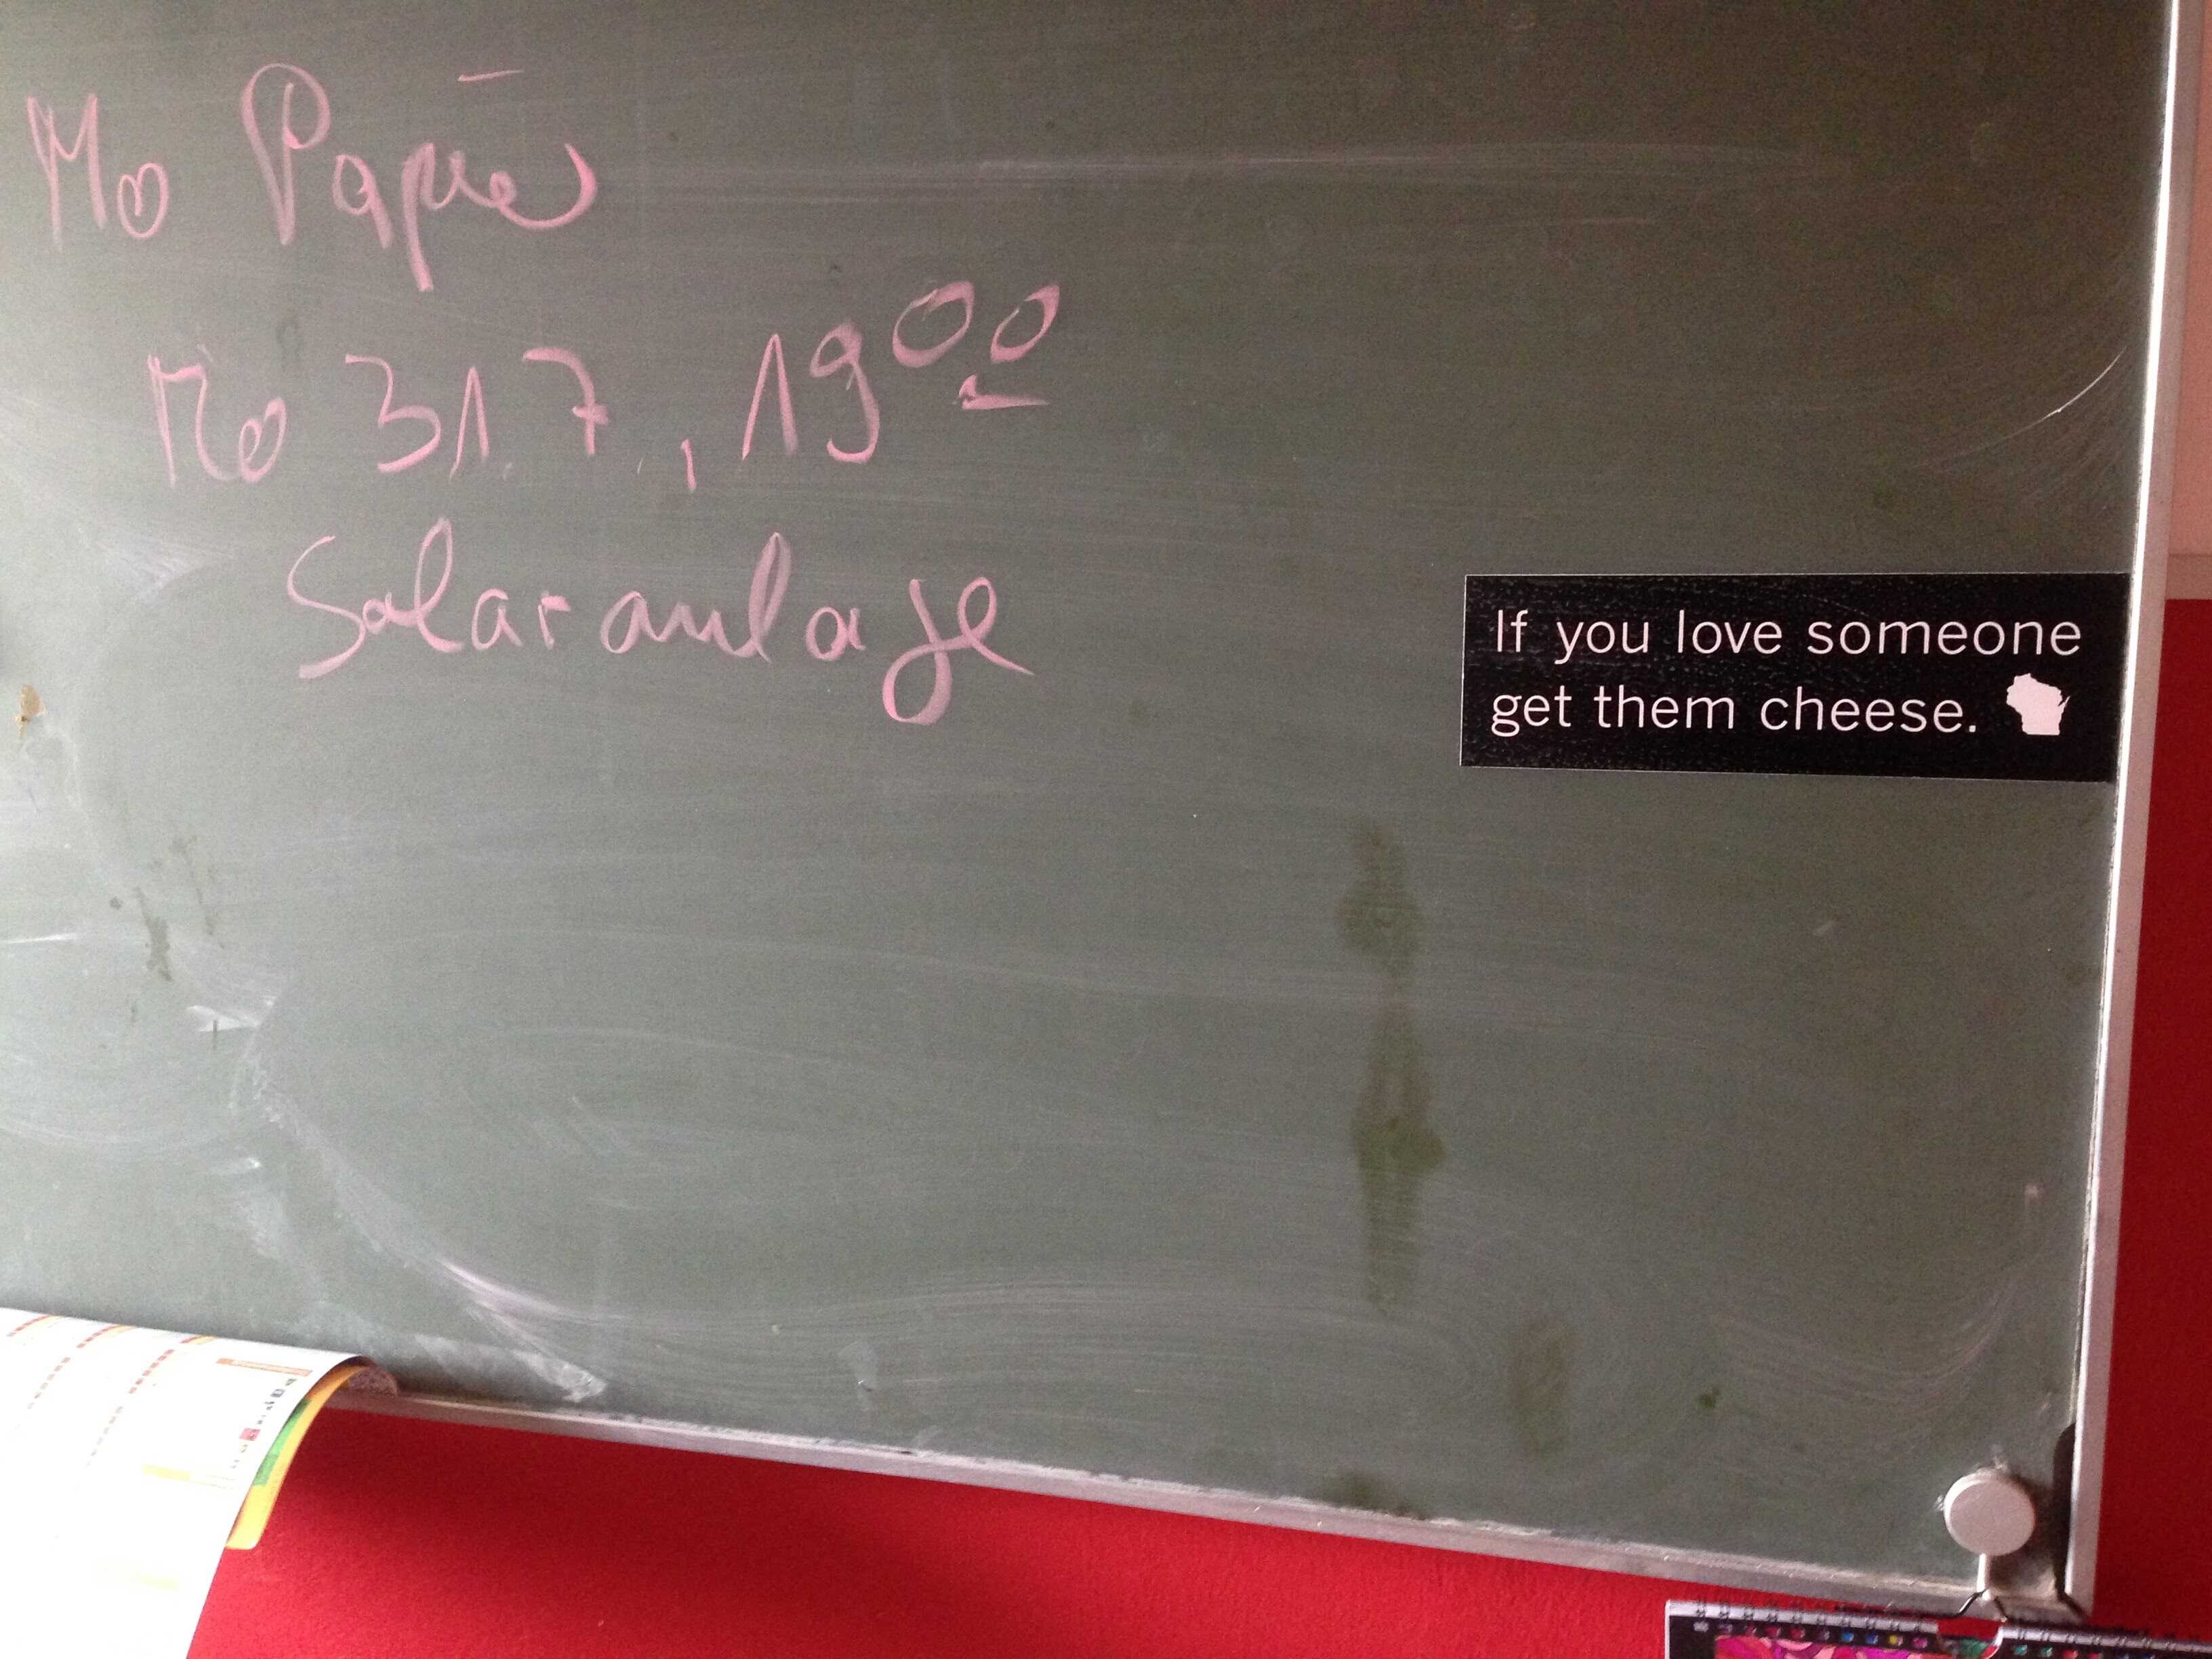 Mo Papier
Mo 31.7., 19⁰⁰
Solaranlage
If you love someone
get them cheese.